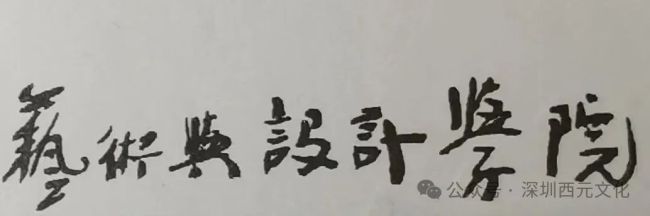 藝術與設計學院
公众号·深圳西元文化